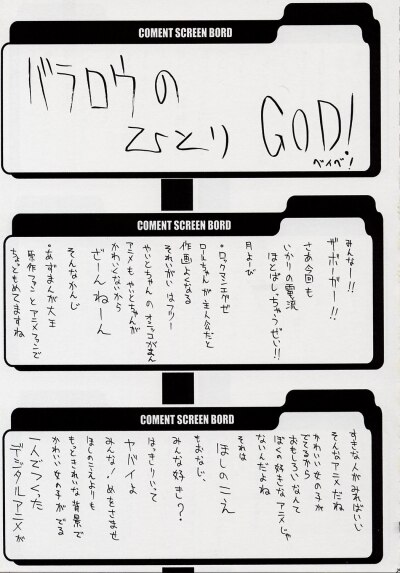 COMENT SCREEN BORD
バラロウの
ひとり GOD!
ベイベ!
COMENT SCREEN BORD
みんなー!!
ザボーガー!!
さあ今回も
いかりの電流
ほとばしっちゃうぜい!!
月よーび
・ロックマンエグゼ
ロールちゃんが主人公だと
作画よくなる
それいがいはフツー
やいとちゃんのオシッコがまん
アニメもやいとちゃんが
かわいくないから
ざーんねーん
そんなかんじ
・あずまんが大王
原作ファンとアニメファンで
ちょっともめてますね
COMENT SCREEN BORD
すきな人がみればいい
そんなアニメだね
かわいい女の子が
でてるから
おもしろいなんて
ぼくの好きなアニメじゃ
ないんだよね
それは
ほしのこえ
もおなじ、
みんな好き?
はっきりいって
ヤバイよ
みんな!めをさませ
ほしのこえよりも
もっときれいな背景で
かわいい女の子がでる
一人でつくった
デジタルアニメが